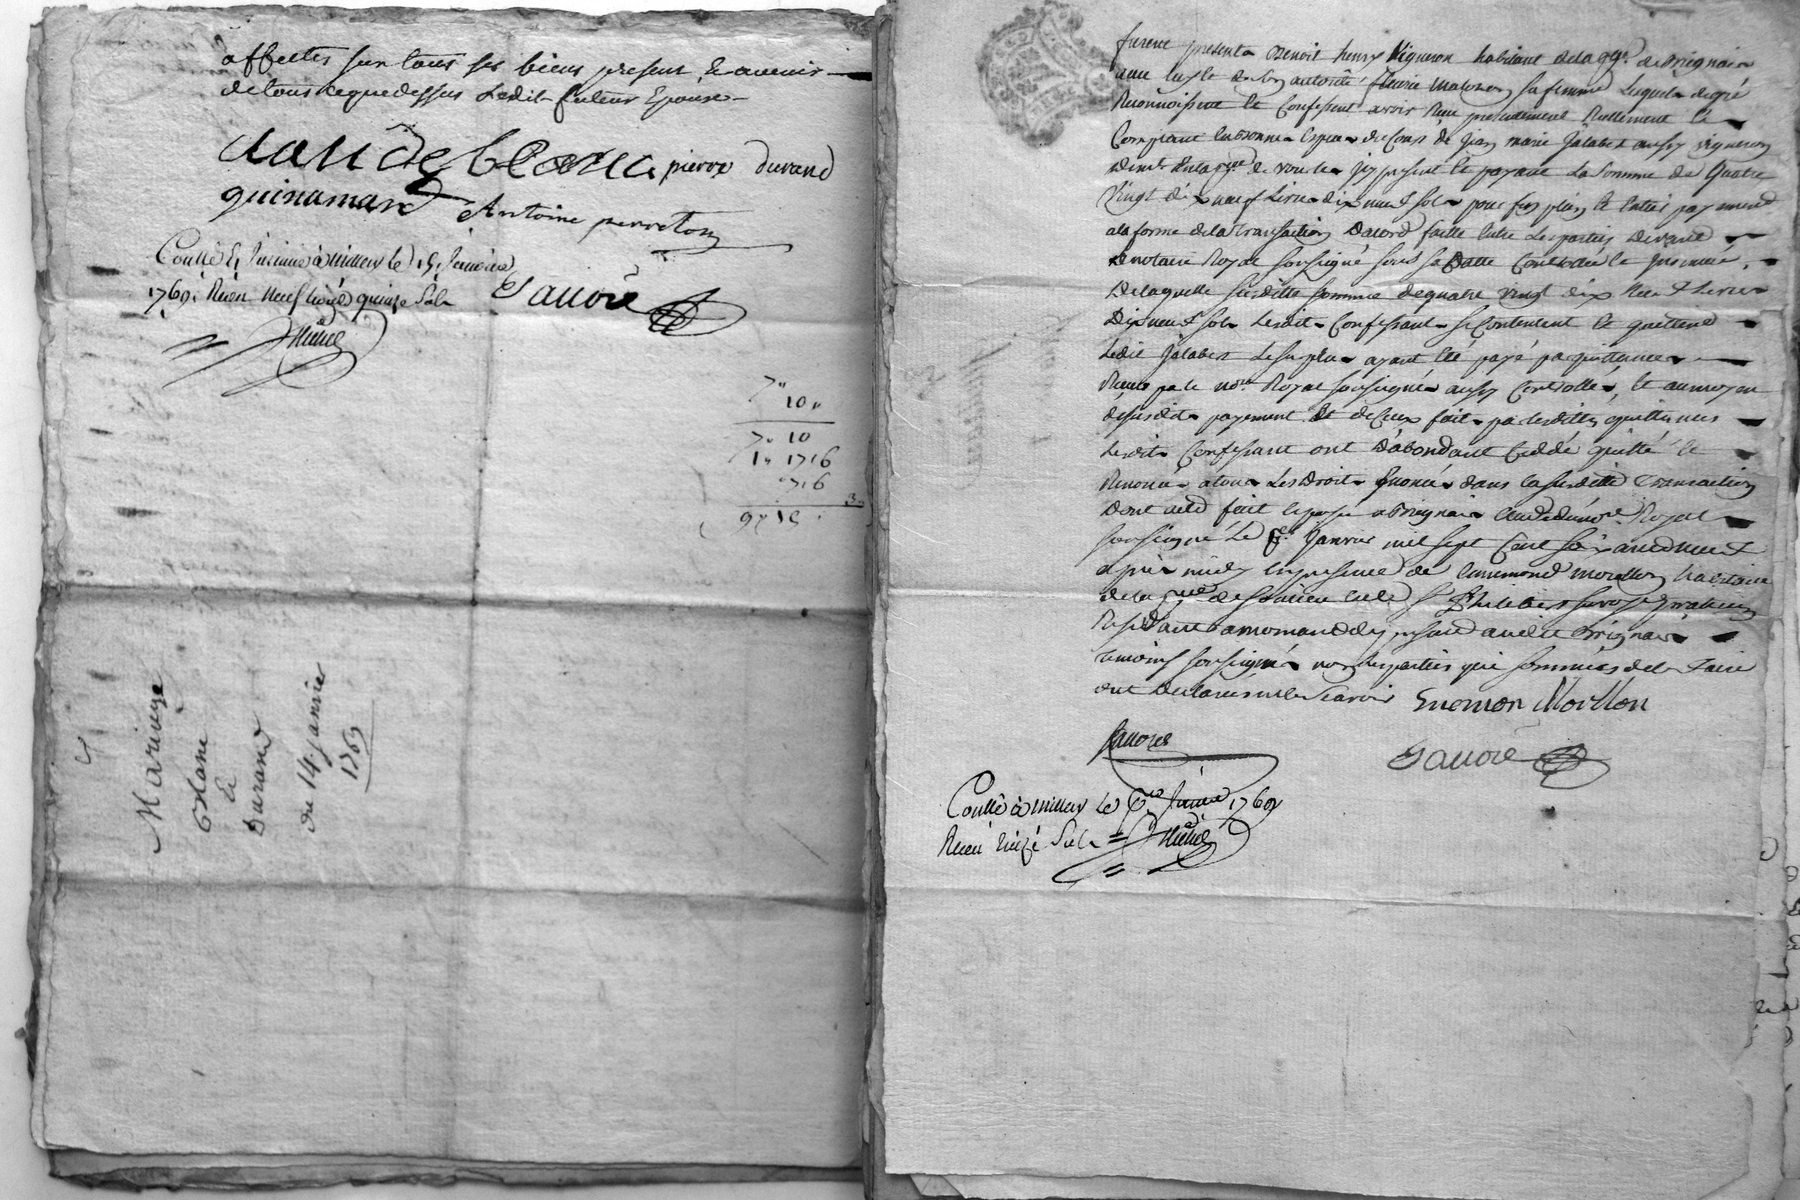 affectés sur tous ses biens present & avenir
de tous cequedessus Ledit futeur Epoux
claude blanc pierre durand
guinamand Antoine perreton
Conllé & Insinué à millery le 15 Janvier
1769. Reçu neuf livres quinze sols Savoie
7" 
10"
7" 10
1" 17 6
" 7 6
9" 15
Mariage
Blanc
&
Durand
du 14 Janvier
1769
furent presents Benoit henry Vigneron habitant delapsse de Brignais
avec luy & de son autorité fleurie sa femme Lesquels degré
Reconnoissent & Confessent avoir Reçu presentement Reellement &
Comptant de Jean marie Jalabert aussy vigneron
Demt. de vourles jcy present & payant La Somme de Quatre
Vingt dix neuf Livres dix neuf sols pour fin plein & entier payement
a la forme dela transaction Dacord faitte entre Les parties devant
Le notaire Royal soussigné sous sa Datte Controllée & Insinuée,
Delaquelle susditte somme dequatre vingt dix neuf Livres
Dix neuf sols Lesdits Confessants se Contentent & quittent
Ledit Jalabert Le surplus ayant été payé par quittances
Reçues par le nore. Royal soussigné aussy Controllées, & au moyen
desusdit payement & de Ceux faits par lesdittes quittances
Lesdits Confessants ont D'abondant Ceddé quitté &
Renoncé atous Les Droits Enoncés dans la susditte Transaction
Dont acte fait & passé a Brignais etude dudt. nore. Royal
soussigné Le Janvier mil sept Cent soixanteneuf
après midy en presence de Morellon habitant
dela psse de soucieu & de Sr. Philibert praticien
Residant present audit Brignais
Temoins soussignés non les parties qui sommées de le faire
ont declaré ne le scavoir Enemon Morllon
Savoie
Conllé à millery le Janvier 1769
Reçu treize sols